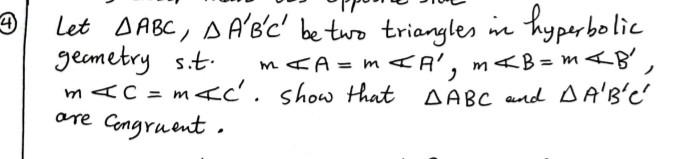 ④ Let △ABC, △A'B'C' be two triangles in hyperbolic
geometry s.t. m∢A = m∢A', m∢B = m∢B',
m∢C = m∢C'. show that △ABC and △A'B'C'
are Congruent.